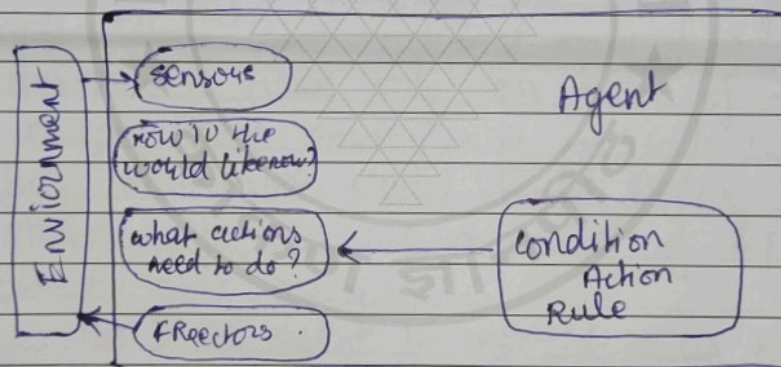 Enviornment
Sensors
Agent
How is the
world like now?
what actions
need to do?
Condition
Action
Rule